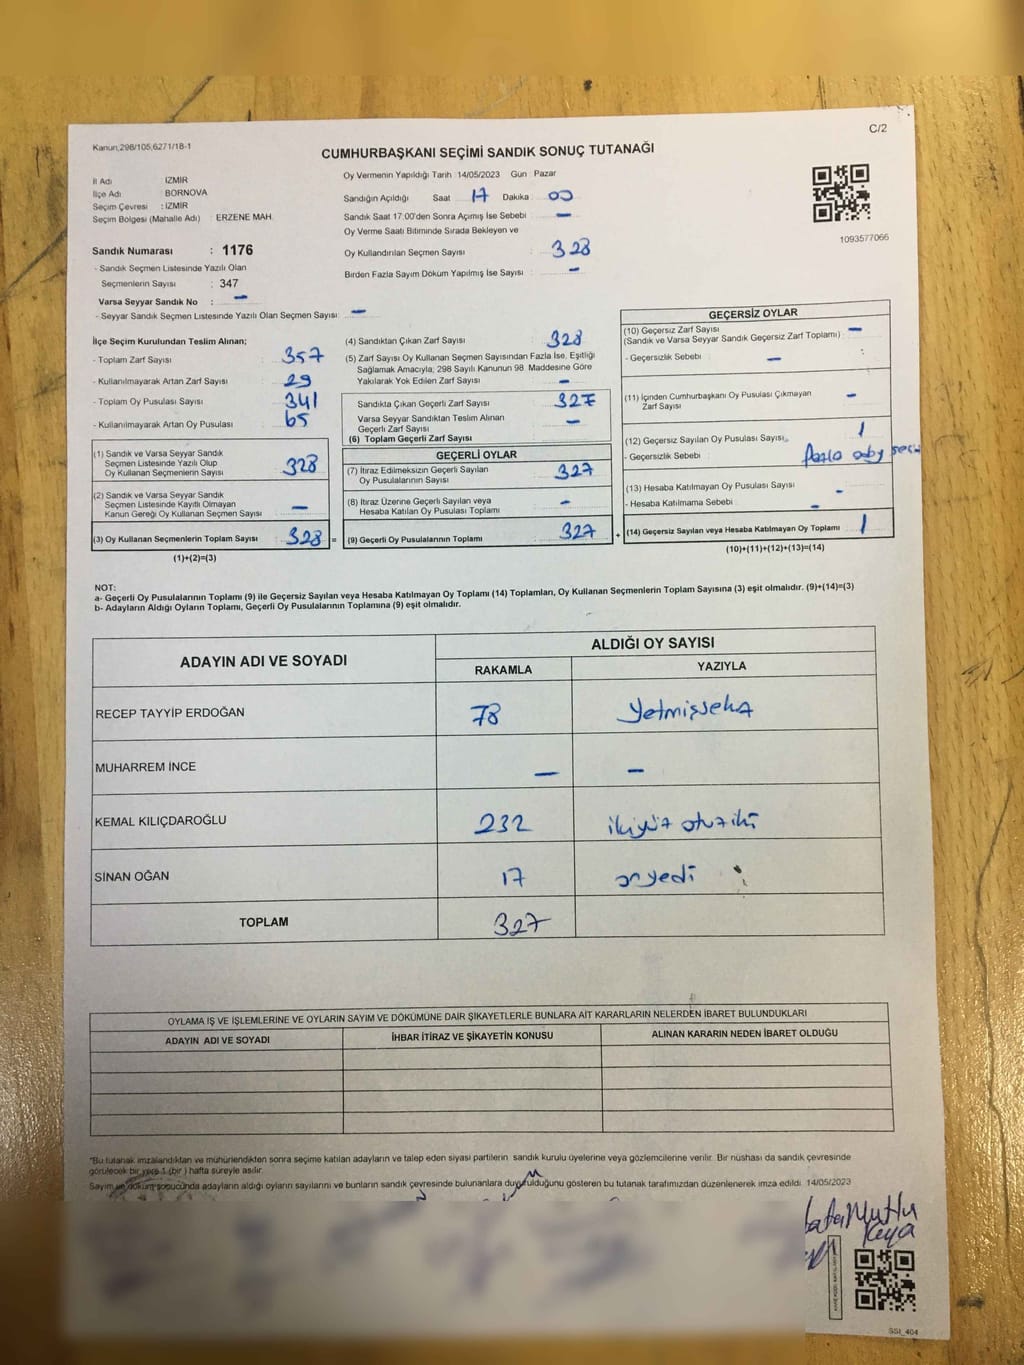 Kanun,298/105,6271/18-1
C/2
CUMHURBAŞKANI SEÇİMİ SANDIK SONUÇ TUTANAĞI
İl Adı İZMİR
İlçe Adı : BORNOVA
Seçim Çevresi : İZMİR
Seçim Bölgesi (Mahalle Adı) : ERZENE MAH.
Sandık Numarası : 1176
- Sandık Seçmen Listesinde Yazılı Olan
Seçmenlerin Sayısı : 347
Varsa Seyyar Sandık No : –
- Seyyar Sandık Seçmen Listesinde Yazılı Olan Seçmen Sayısı: –
Oy Vermenin Yapıldığı Tarih 14/05/2023 Gün Pazar
Sandığın Açıldığı Saat 17 Dakika 00
Sandık Saat 17:00'den Sonra Açımış İse Sebebi –
Oy Verme Saati Bitiminde Sırada Bekleyen ve
Oy Kullandırılan Seçmen Sayısı 328
Birden Fazla Sayım Döküm Yapılmış İse Sayısı : –
1093577066
İlçe Seçim Kurulundan Teslim Alınan;
- Toplam Zarf Sayısı 357
- Kullanılmayarak Artan Zarf Sayısı 29
- Toplam Oy Pusulası Sayısı 341
- Kullanılmayarak Artan Oy Pusulası 65
(1) Sandık ve Varsa Seyyar Sandık
Seçmen Listesinde Yazılı Olup
Oy Kullanan Seçmenlerin Sayısı 328
(2) Sandık ve Varsa Seyyar Sandık
Seçmen Listesinde Kayıtlı Olmayan
Kanun Gereği Oy Kullanan Seçmen Sayısı –
(3) Oy Kullanan Seçmenlerin Toplam Sayısı 328 =
(1)+(2)=(3)
(4) Sandıktan Çıkan Zarf Sayısı 328
(5) Zarf Sayısı Oy Kullanan Seçmen Sayısından Fazla İse, Eşitliği
Sağlamak Amacıyla; 298 Sayılı Kanunun 98. Maddesine Göre
Yakılarak Yok Edilen Zarf Sayısı –
Sandıkta Çıkan Geçerli Zarf Sayısı 327
Varsa Seyyar Sandıktan Teslim Alınan
Geçerli Zarf Sayısı –
(6) Toplam Geçerli Zarf Sayısı
GEÇERLİ OYLAR
(7) İtiraz Edilmeksizin Geçerli Sayılan
Oy Pusulalarının Sayısı 327
(8) İtiraz Üzerine Geçerli Sayılan veya
Hesaba Katılan Oy Pusulası Toplamı –
(9) Geçerli Oy Pusulalarının Toplamı 327 +
GEÇERSİZ OYLAR
(10) Geçersiz Zarf Sayısı –
(Sandık ve Varsa Seyyar Sandık Geçersiz Zarf Toplamı) :
- Geçersizlik Sebebi –
(11) İçinden Cumhurbaşkanı Oy Pusulası Çıkmayan
Zarf Sayısı –
(12) Geçersiz Sayılan Oy Pusulası Sayısı 1
- Geçersizlik Sebebi Fazla aday
(13) Hesaba Katılmayan Oy Pusulası Sayısı –
- Hesaba Katılmama Sebebi –
(14) Geçersiz Sayılan veya Hesaba Katılmayan Oy Toplamı 1
(10)+(11)+(12)+(13)=(14)
NOT:
a- Geçerli Oy Pusulalarının Toplamı (9) ile Geçersiz Sayılan veya Hesaba Katılmayan Oy Toplamı (14) Toplamları, Oy Kullanan Seçmenlerin Toplam Sayısına (3) eşit olmalıdır. (9)+(14)=(3)
b- Adayların Aldığı Oyların Toplamı, Geçerli Oy Pusulalarının Toplamına (9) eşit olmalıdır.
ADAYIN ADI VE SOYADI
ALDIĞI OY SAYISI
RAKAMLA YAZIYLA
RECEP TAYYİP ERDOĞAN 78 Yetmişsekiz
MUHARREM İNCE – –
KEMAL KILIÇDAROĞLU 232 ikiyüz otuziki
SİNAN OĞAN 17 onyedi
TOPLAM 327
OYLAMA İŞ VE İŞLEMLERİNE VE OYLARIN SAYIM VE DÖKÜMÜNE DAİR ŞİKAYETLERLE BUNLARA AİT KARARLARIN NELERDEN İBARET BULUNDUKLARI
ADAYIN ADI VE SOYADI İHBAR İTİRAZ VE ŞİKAYETİN KONUSU ALINAN KARARIN NEDEN İBARET OLDUĞU
*Bu tutanak imzalandıktan ve mühürlendikten sonra seçime katılan adayların ve talep eden siyasi partilerin sandık kurulu üyelerine veya gözlemcilerine verilir. Bir nüshası da sandık çevresinde
görülecek bir yere 1 (bir) hafta süreyle asılır.
Sayım ve döküm sonucunda adayların aldığı oyların sayılarını ve bunların sandık çevresinde bulunanlara duyurulduğunu gösteren bu tutanak tarafımızdan düzenlenerek imza edildi. 14/05/2023
Mutlu
Kaya
SSI_404